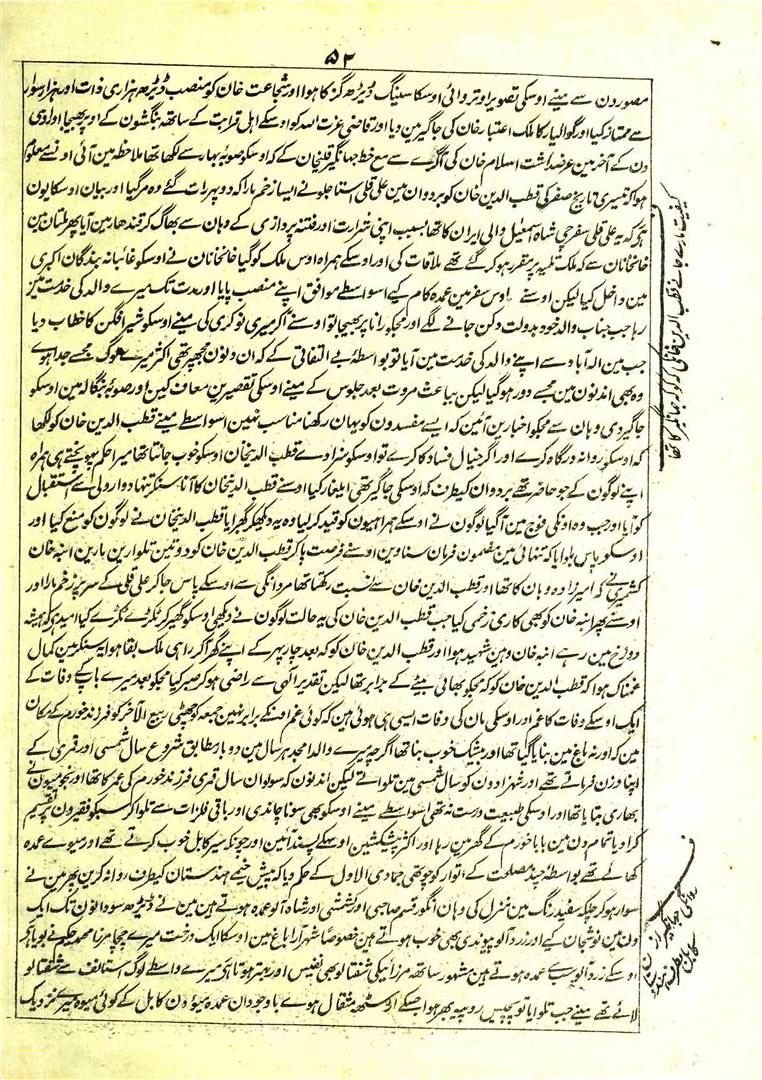 ۵۲
مصورون سے مینے اوسکی تصویر اوتروائی اوسکا سینگ ڈیڑھ گز کا ہوا اور شجاعت خان کو منصب ڈیڑھ ہزاری ذات اور ہزار سوار
سے ممتاز کیا اور گوالیار کا ملک اعتبار خان کی جاگیر مین دیا اور قاضی عزت اللہ کو اوسکے اہل قرابت کے ساتھ بنگشون کے اوپر بھیجا اوسی
دن کے آخر مین عرضداشت اسلام خان کی آگرے سے مع خط جہانگیر قلیخان کے کہ اوسکو صوبہ بہار سے لکھا تھا ملاحظہ مین آئی اوس سے معلوم
ہوا کہ تیسری تاریخ صفر کی قطب الدین خان کو بردوان مین علی قلی استاجلو نے ایسا زخم مارا کہ دو پہر رات گئے وہ مر گیا اور بیان اوسکا یون
ہی کہ یہ علی قلی سفرچی شاہ اسمعیل والی ایران کا تھا بسبب اپنی شرارت اور فتنہ پردازی کے وہان سے بھاگ کر قندھار مین آیا پھر ملتان مین
خانخانان سے کہ ملک تلمبہ پر مقرر ہو کر گئے تھے ملاقات کی اور اوسکے ہمراہ اوس ملک کو گیا خانخانان نے اوسکو غائبانہ بندگان اکبری
مین داخل کیا لیکن اوسنے اوس سفر مین عمدہ کام کیے اسواسطے موافق اپنے منصب پایا اور مدت تک میرے والد کی خدمت مین
رہا جب جناب والد خود بدولت دکن جانے لگے اور مجکو رانا پر بھیجا تو اوسنے آکر میری نوکری کی مینے اوسکو شیر افگن کا خطاب دیا
جب مین الہ آباد سے اپنے والد کی خدمت مین آیا تو بواسطہ بے التفاتی کے کہ ان دنون مجھپر تھی اکثر میرے لوگ مجھسے جدا ہوئے
وہ بھی اندنون مین مجھسے دور ہو گیا لیکن بباعث مروت بعد جلوس کے مینے اوسکی تقصیرین معاف کین اور صوبہ بنگالہ مین اوسکو
جاگیر دی وہان سے مجکو اخبارین آئین کہ ایسے مفسدون کو یہان رکھنا مناسب نہین اسواسطے مینے قطب الدین خان کو لکھا
کہ اوسکو روانہ درگاہ کرے اور اگر خیال فساد کا کرے تو اوسکو سزا دے قطب الدینخان اوسکو خوب جانتا تھا میرا حکم پہونچتے ہی ہمراہ
اپنے لوگون کے جو حاضر تھے بردوان کیطرف کہ اوسکی جاگیر تھی ایلغار کیا اوسنے قطب الدینخان کا آنا سنکر تنہا دو اردلی سے استقبال
کو آیا اور جب وہ اونکی فوج مین آگیا لوگون نے اوسکے ہمراہیون کو قید کر لیا وہ یہ دیکھکر گھبرایا قطب الدینخان نے لوگون کو منع کیا اور
اوسکو پاس بلوایا کہ تنہائی مین مضمون فرمان سناوین اوسنے فرصت پا کر قطب الدین خان کو دو تین تلوارین مارین انبہ خان
کشمیری نے کہ امیرزادہ وہان کا تھا اور قطب الدین خان سے نسبت رکھتا تھا مردانگی سے اوسکے پاس جا کر علی قلی کے سر پر زخم مارا اور
اوسنے پھر انبہ خان کو بھی کاری زخمی کیا جب قطب الدین خان کی یہ حالت لوگون نے دیکھی اوسکو گھیر کر ٹکڑے ٹکڑے کیا امید ہی کہ ہمیشہ
دوزخ مین رہے انبہ خان وہین شہید ہوا اور قطب الدین خان کو کہ بعد چار پہر کے اپنے گھر آ کر راہی ملک بقا ہوا یہ سنکر مین کمال
غمناک ہوا کہ قطب الدین خان کو کہ مجکو بھائی بیٹے کے برابر تھا لیکن تقدیر الٰہی سے راضی ہو کر صبر کیا مجکو بعد میرے باپکے وفات کے
ایک اوسکے وفات کا غم اور اوسکی مان کی وفات ایسی ہی ہوئی ہین کہ کوئی غم انکے برابر نہین جمعہ کو چھٹی ربیع الآخر کو فرزند خورم کے مکان
مین کہ اورتہ باغ مین بنایا گیا تھا اور بیشک خوب بنا تھا اگرچہ میرے والد امجد ہر سال مین دوبار مطابق شروع سال شمسی اور قمری کے
اپنا وزن فرماتے تھے اور شہزادون کو سال شمسی مین تلواتے لیکن اندنون کہ سولوان سال قمری فرزند خورم کی عمر کا تھا اور نجومیون نے
بھاری بتایا تھا اور اوسکی طبیعت درست نہ تھی اسواسطے مینے اوسکو بھی سونا چاندی اور باقی فلزات سے تلوا کر سبکو فقیرون پر تقسیم
کرا دیا تمام دن مین بابا خورم کے گھر مین رہا اور اکثر پیشکشین اوسکے پسند آئین اور چونکہ سیر کابل خوب کرتے تھے اور میوے عمدہ
کھائے تھے بواسطہ چند مصلحت کے اتوار کو چوتھی جمادی الاول کے حکم دیا کہ پیش خیمے ہندستان کیطرف روانہ کرین پھر مین نے
سوار ہو کر جلگہ سفید رنگ مین منزل کی وہان انگور قسم صاحبی اور کشمشی اور شاہ آلو عمدہ ہوتے ہین مین نے ڈیڑھ سو دانون تک ایک
دن مین نوشجان کیے اور زردآلو پیوندی بھی خوب ہوتے ہین خصوصا شہر آرا باغ مین اوسکا ایک درخت میرے چچا مرزا محمد حکیم نے بویا ہی کہ
اوسکے زردآلو سب سے عمدہ ہوتے ہین مشہور ساتھ مرزائی کے شفتالو بھی نفیس اور بہتر ہوتا ہی میرے واسطے لوگ استالف سے شفتالو
لائے تھے مینے جب تلوایا تو پچیس روپیہ بھر ہوا جسکے اڑسٹھ مثقال ہوے باوجود ان عمدہ میوؤن کابل کے کوئی میوہ میرے نزدیک
کیفیت مارے جانے قطب الدین خان کی کہ کوکہ جہانگیر کا تھا
روانگی جہانگیر از کابل بطرف ہندوستان